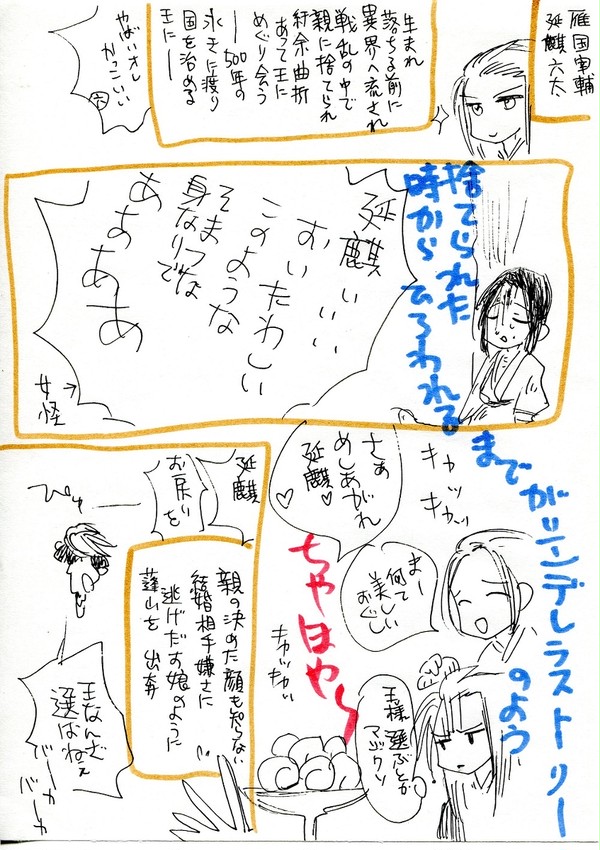 雁国宰輔
延麒六太
生まれ
落ちる前に
異界へ流され
戦乱の中で
親に捨てられ
紆余曲折
あって王に
めぐり会う
――500年の
永きに渡り
国を治める
王に――
やばいオレ
かっこいい
六
捨てられた
時から ひろわれる
までがシンデレラストーリー
のよう
延麒
おいたわしい
このような
そまつな
身なりで
ああああ
女怪
キャッキャッ
さぁ
めしあがれ
延麒♡
♡
まー
何て
美しい
おぐし
ちやほや〜
キャッキャッ
王様選ぶとか
マジウケる
延麒
お戻りを
親の決めた顔も知らない
結婚相手嫌さに
逃げだす娘のように
蓬山を出奔
王なんざ
選ばねぇ
バーカ
バーカ